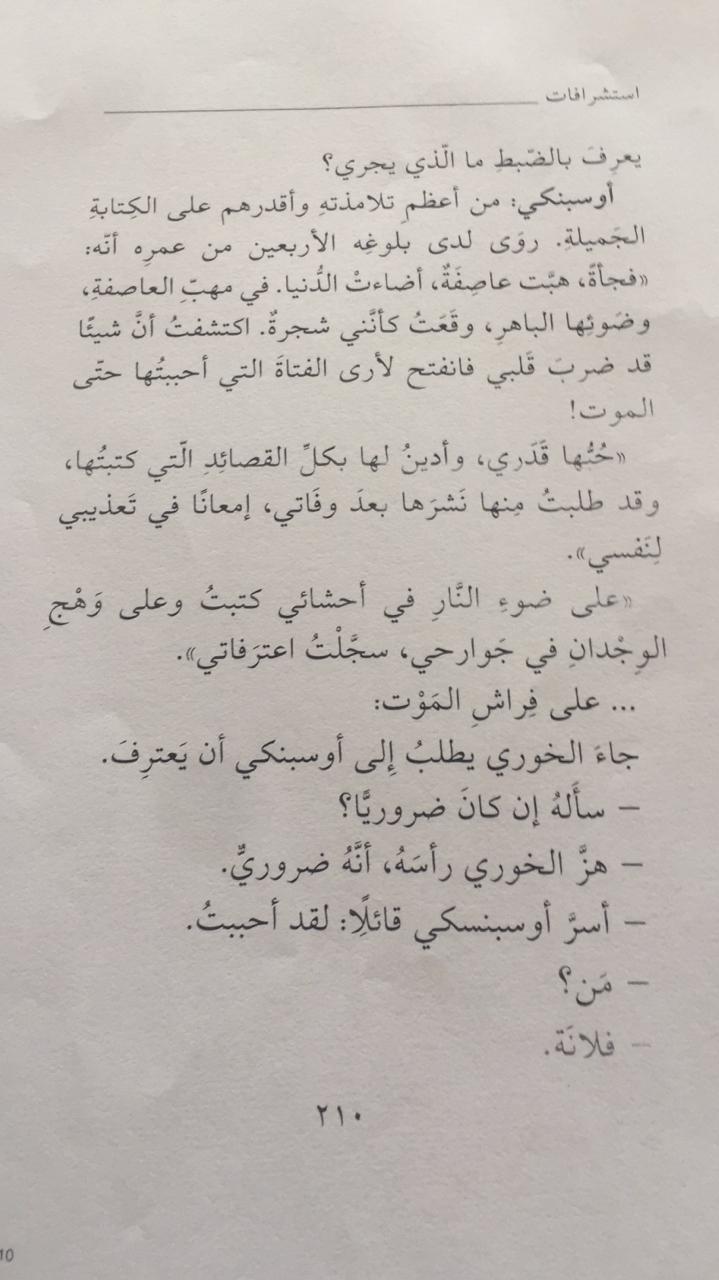 استشرافات
يعرِفَ بالضّبطِ ما الّذي يجري؟
أوسبنكي: من أعظمِ تلامذتهِ وأقدرهم على الكِتابةِ
الجَميلةِ. روَى لدى بلوغِه الأربعين من عمرِه أنّه:
«فجأةً، هبَّت عاصِفَةٌ، أضاءتْ الدُّنيا. في مهبِّ العاصفةِ،
وضَوئِها الباهرِ، وقَعَتُ كأنَّني شجرةٌ. اكتشفتُ أنَّ شيئًا
قد ضربَ قَلبي فانفتح لأرى الفتاةَ التي أحببتُها حتّى
الموت!
«حُبُّها قَدَري، وأدينُ لها بكلِّ القصائِدِ الّتي كتبتُها،
وقد طلبتُ مِنها نَشرَها بعدَ وفَاتي، إمعانًا في تَعذيبي
لِنَفسي».
«على ضوءِ النَّارِ في أحشائي كتبتُ وعلى وَهْجِ
الوِجْدانِ في جَوارحي، سجَّلْتُ اعترَفاتي».
... على فِراشِ المَوْت:
جاءَ الخوري يطلبُ إِلى أوسبنكي أن يَعترِفَ.
– سأَلهُ إن كانَ ضروريًّا؟
– هزَّ الخوري رأسَهُ، أنَّهُ ضروريٌّ.
– أسرَّ أوسبنسكي قائلًا: لقد أحببتُ.
– مَن؟
– فلانَة.
٢١٠
10